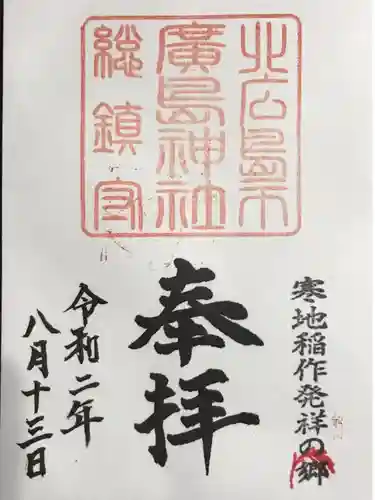 北広島市
廣島神社
総鎮守
寒地稲作発祥の郷
奉拝
令和二年
八月十三日